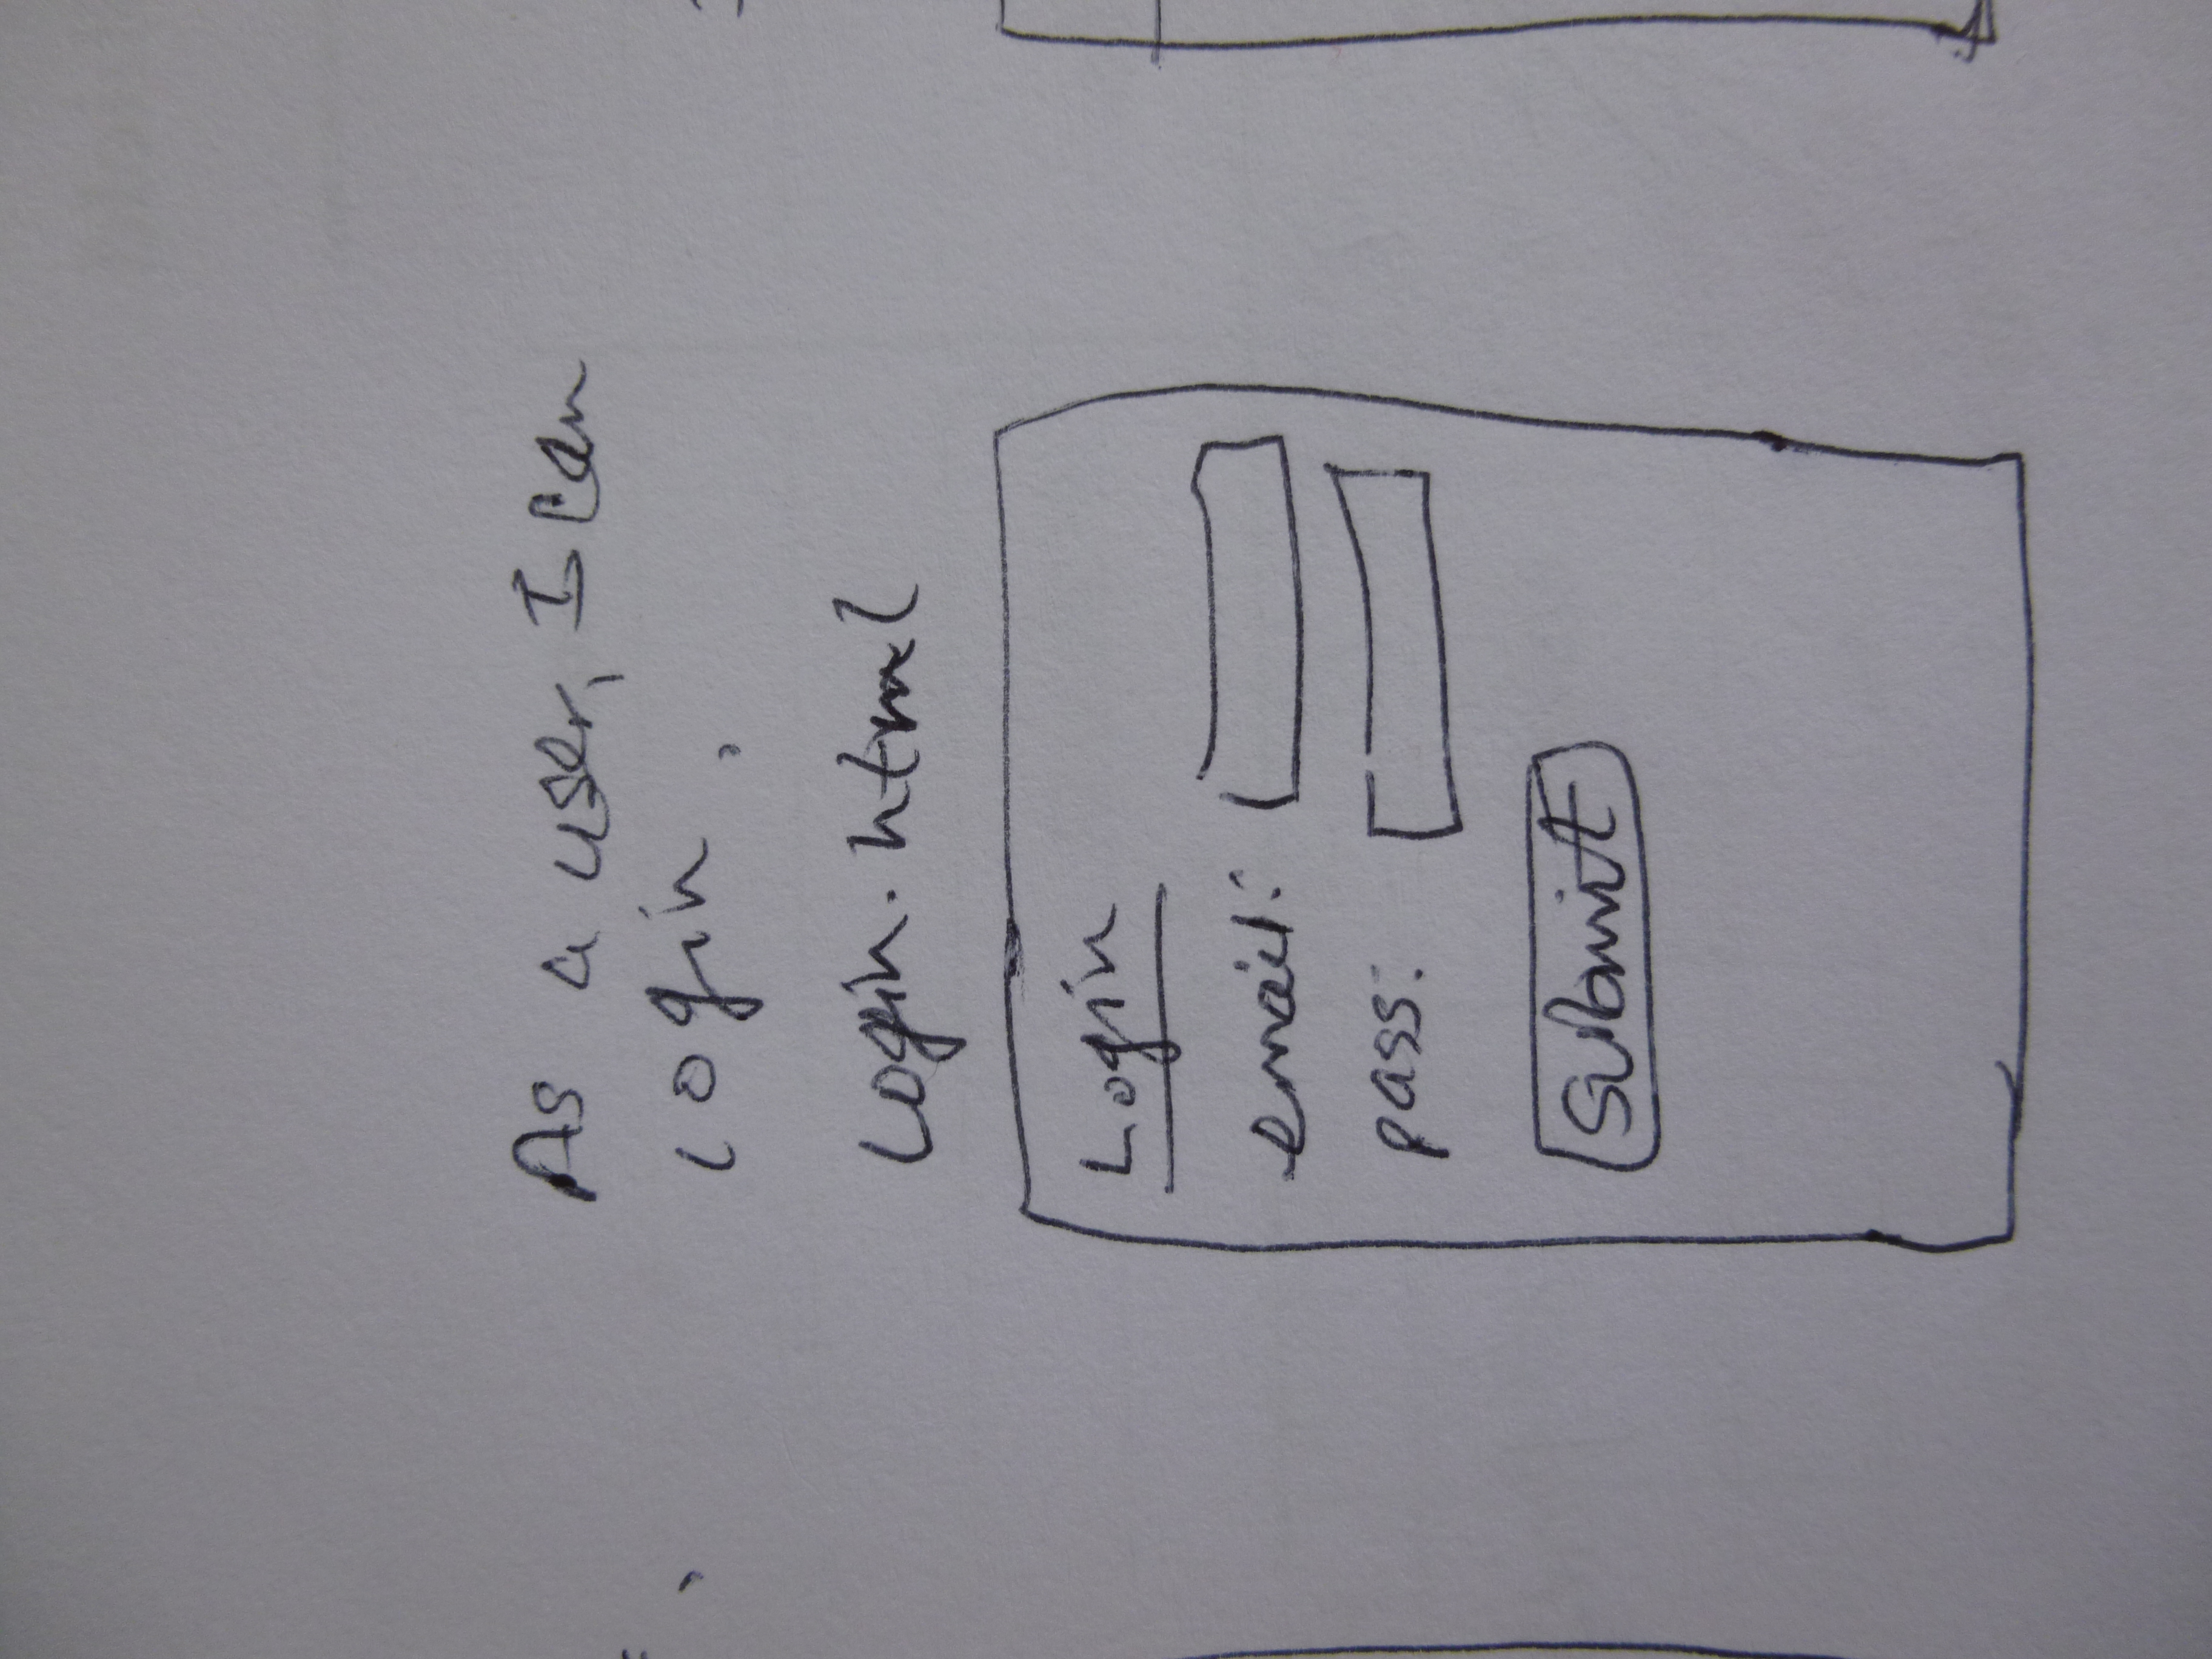 As a user, I can
Login.
Login.html
Login
email:
pass:
Submit